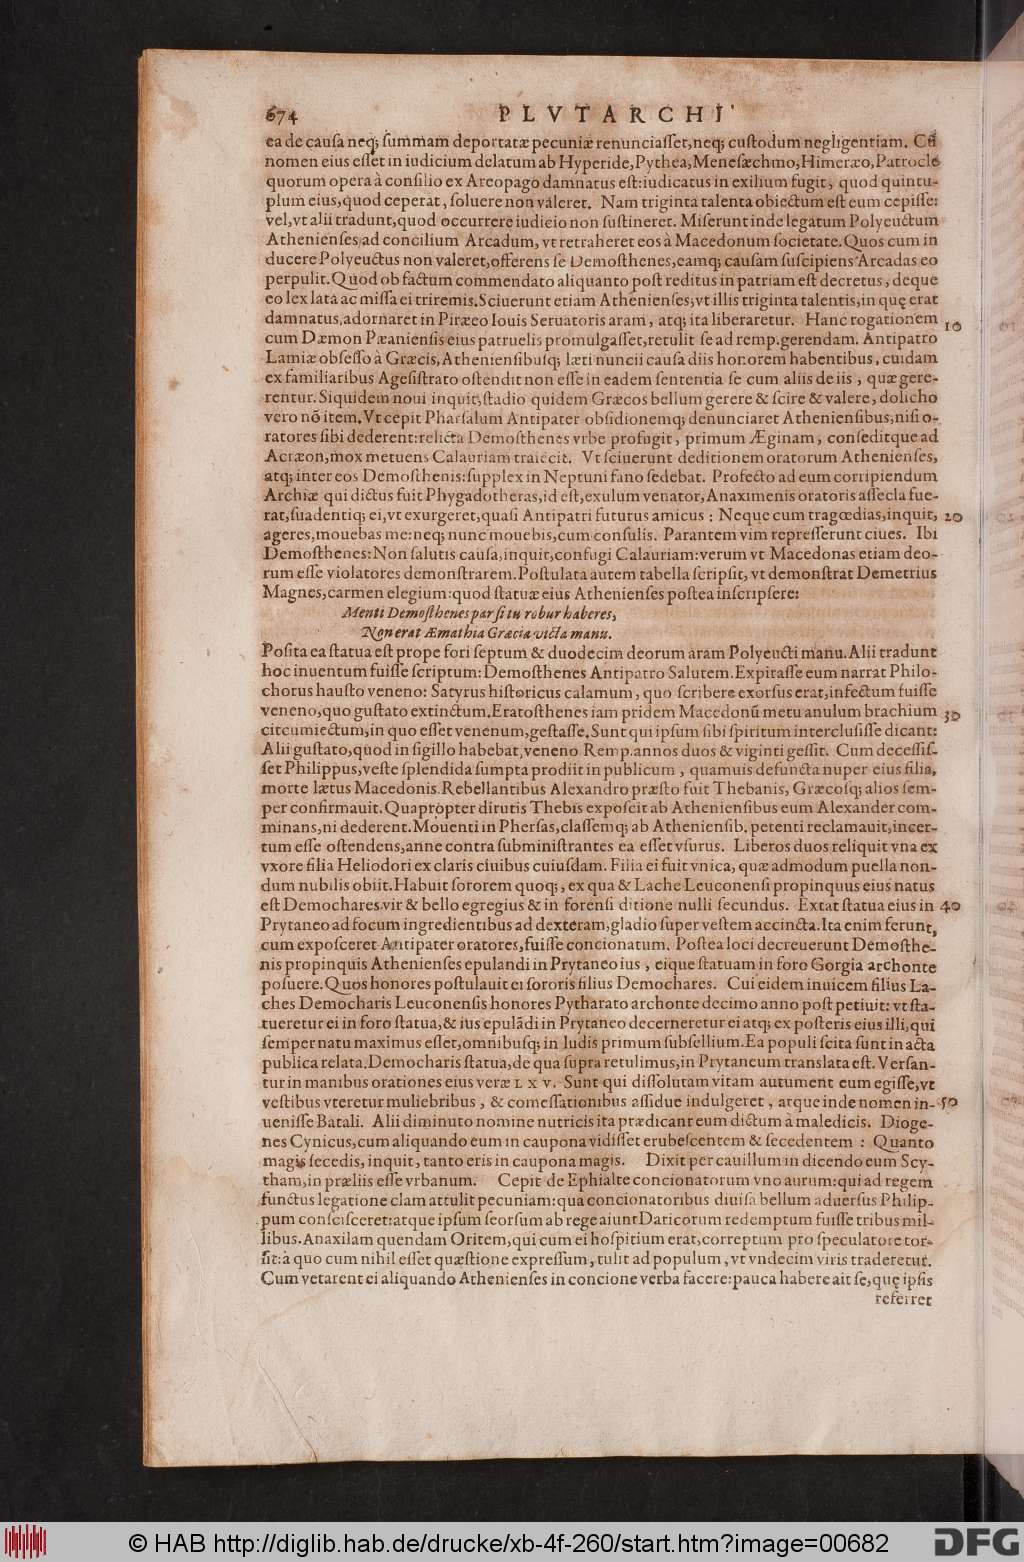 674 PLVTARCHI
ea de cauſa neq; ſummam deportatæ pecuniæ renunciaſſet, neq; cuſtodum negligentiam. Cū
nomen eius eſſet in iudicium delatum ab Hyperide, Pythea, Meneſæchmo, Himeræo, Patrocle
quorum opera à conſilio ex Areopago damnatus eſt: iudicatus in exilium fugit, quod quintu-
plum eius, quod ceperat, ſoluere non valeret. Nam triginta talenta obiectum eſt eum cepiſſe:
vel, vt alii tradunt, quod occurrere iudicio non ſuſtineret. Miſerunt inde legatum Polyeuctum
Athenienſes ad concilium Arcadum, vt retraheret eos à Macedonum ſocietate. Quos cum in
ducere Polyeuctus non valeret, offerens ſe Demoſthenes, eamq; cauſam ſuſcipiens Arcadas eo
perpulit. Quod ob factum commendato aliquanto poſt reditus in patriam eſt decretus, deque
eo lex lata ac miſſa ei triremis. Sciuerunt etiam Athenienſes, vt illis triginta talentis, in quę erat
damnatus, adornaret in Piræeo Iouis Seruatoris aram, atq; ita liberaretur. Hanc rogationem 10
cum Dæmon Pæanienſis eius patruelis promulgaſſet, retulit ſe ad remp. gerendam. Antipatro
Lamiæ obſeſſo à Græcis, Athenienſibuſq; læti nuncii cauſa diis honorem habentibus, cuidam
ex familiaribus Ageſiſtrato oſtendit non eſſe in eadem ſententia ſe cum aliis de iis, quæ gere-
rentur. Siquidem noui inquit, ſtadio quidem Græcos bellum gerere & ſcire & valere, dolicho
vero nō item. Vt cepit Pharſalum Antipater obſidionemq; denunciaret Athenienſibus, niſi o-
ratores ſibi dederent: relicta Demoſthenes vrbe profugit, primum Æginam, conſeditque ad
Acræon, mox metuens Calauriam traiecit. Vt ſciuerunt deditionem oratorum Athenienſes,
atq; inter eos Demoſthenis: ſupplex in Neptuni fano ſedebat. Profecto ad eum corripiendum
Archiæ qui dictus fuit Phygadotheras, id eſt, exulum venator, Anaximenis oratoris aſſecla fue-
rat, ſuadentiq; ei, vt exurgeret, quaſi Antipatri futurus amicus: Neque cum tragœdias, inquit, 20
ageres, mouebas me: neq; nunc mouebis, cum conſulis. Parantem vim repreſſerunt ciues. Ibi
Demoſthenes: Non ſalutis cauſa, inquit, confugi Calauriam: verum vt Macedonas etiam deo-
rum eſſe violatores demonſtrarem. Poſtulata autem tabella ſcripſit, vt demonſtrat Demetrius
Magnes, carmen elegium: quod ſtatuæ eius Athenienſes poſtea inſcripſere:
Menti Demoſthenes par ſi tu robur haberes,
Non erat Æmathia Græcia victa manu.
Poſita ea ſtatua eſt prope fori ſeptum & duodecim deorum aram Polyeucti manu. Alii tradunt
hoc inuentum fuiſſe ſcriptum: Demoſthenes Antipatro Salutem. Expiraſſe eum narrat Philo-
chorus hauſto veneno: Satyrus hiſtoricus calamum, quo ſcribere exorſus erat, infectum fuiſſe
veneno, quo guſtato extinctum. Eratoſthenes iam pridem Macedonū metu anulum brachium 30
circumiectum, in quo eſſet venenum, geſtaſſe. Sunt qui ipſum ſibi ſpiritum intercluſiſſe dicant:
Alii guſtato, quod in ſigillo habebat, veneno. Remp. annos duos & viginti geſſit. Cum deceſſiſ-
ſet Philippus, veſte ſplendida ſumpta prodiit in publicum, quamuis defuncta nuper eius filia,
morte lætus Macedonis. Rebellantibus Alexandro præſto fuit Thebanis, Græcoſq; alios ſem-
per confirmauit. Quapropter dirutis Thebis expoſcit ab Athenienſibus eum Alexander com-
minans, ni dederent. Mouenti in Pherſas, claſſemq; ab Athenienſib. petenti reclamauit, incer-
tum eſſe oſtendens, anne contra ſubminiſtrantes ea eſſet vſurus. Liberos duos reliquit vna ex
vxore filia Heliodori ex claris ciuibus cuiuſdam. Filia ei fuit vnica, quæ admodum puella non-
dum nubilis obiit. Habuit ſororem quoq;, ex qua & Lache Leuconenſi propinquus eius natus
eſt Demochares vir & bello egregius & in forenſi ditione nulli ſecundus. Extat ſtatua eius in 40
Prytaneo ad focum ingredientibus ad dexteram, gladio ſuper veſtem accincta. Ita enim ferunt,
cum expoſceret Antipater oratores, fuiſſe concionatum. Poſtea loci decreuerunt Demoſthe-
nis propinquis Athenienſes epulandi in Prytaneo ius, eique ſtatuam in foro Gorgia archonte
poſuere. Quos honores poſtulauit ei ſororis filius Demochares. Cui eidem inuicem filius La-
ches Democharis Leuconenſis honores Pytharato archonte decimo anno poſt petiuit: vt ſta-
tueretur ei in foro ſtatua, & ius epulādi in Prytaneo decerneretur ei atq; ex poſteris eius illi, qui
ſemper natu maximus eſſet, omnibuſq; in ludis primum ſubſellium. Ea populi ſcita ſunt in acta
publica relata. Democharis ſtatua, de qua ſupra retulimus, in Prytaneum translata eſt. Verſan-
tur in manibus orationes eius veræ LXV. Sunt qui diſſolutam vitam autument eum egiſſe, vt
veſtibus vteretur muliebribus, & comeſſationibus aſſidue indulgeret, atque inde nomen in- 50
ueniſſe Batali. Alii diminuto nomine nutricis ita prædicant eum dictum à maledicis. Dioge-
nes Cynicus, cum aliquando eum in caupona vidiſſet erubeſcentem & ſecedentem: Quanto
magis ſecedis, inquit, tanto eris in caupona magis. Dixit per cauillum in dicendo eum Scy-
tham, in præliis eſſe vrbanum. Cepit de Ephialte concionatorum vno aurum: qui ad regem
functus legatione clam attulit pecuniam: qua concionatoribus diuiſa bellum aduerſus Philip-
pum conſciſceret: atque ipſum ſeorſum ab rege aiunt Daricorum redemptum fuiſſe tribus mil-
libus. Anaxilam quendam Oritem, qui cum ei hoſpitium erat, correptum pro ſpeculatore tor-
ſit: à quo cum nihil eſſet quæſtione expreſſum, tulit ad populum, vt vndecim viris traderetur.
Cum vetarent ei aliquando Athenienſes in concione verba facere: pauca habere ait ſe, quę ipſis
referret
© HAB http://diglib.hab.de/drucke/xb-4f-260/start.htm?image=00682
DFG